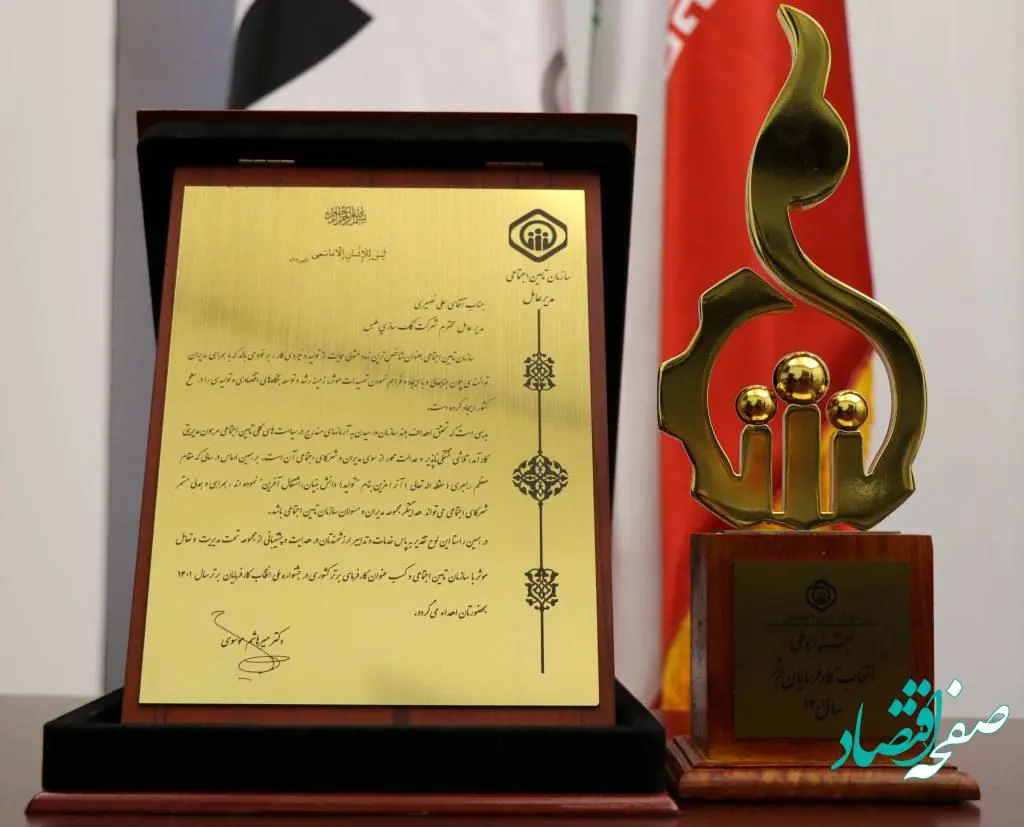 بسم الله الرحمن الرحیم
لیس للإنسان إلّا ما سعی
سازمان تامین اجتماعی
مدیر عامل
جناب آقای علی نصیری
مدیر عامل محترم شرکت کک سازی طبس
سازمان تامین اجتماعی بعنوان شاخص ترین نهاد متولی حمایت از تولید و نیروی کار، بر خود می بالد که با همراهی مدیران
توانمندی چون جنابعالی و با ایجاد و فراهم نمودن تمهیدات موثر، زمینه رشد و توسعه بنگاههای اقتصادی و تولیدی را در سطح
کشور ایجاد کرده است.
بدیهی است که تحقق اهداف بلند سازمان در رسیدن به آرمانهای مندرج در سیاست های کلی تامین اجتماعی مرهون مدیریتی
کارآمد، تلاشی خستگی ناپذیر و عدالت محور از سوی مدیران و شرکای اجتماعی آن است. بر همین اساس در سالی که مقام
معظم رهبری (حفظه اله تعالی) آنرا مزین بنام "تولید؛ دانش بنیان، اشتغال آفرین" نموده اند، همراهی و همدلی مستمر
شرکای اجتماعی می تواند هدایتگر مجموعه مدیران و مسئولان سازمان تامین اجتماعی باشد.
در همین راستا این لوح تقدیر به پاس خدمات و تدابیر ارزشمندتان در هدایت و پشتیبانی از مجموعه تحت مدیریت و تعامل
موثر با سازمان تامین اجتماعی و کسب عنوان کارفرمای برتر کشوری در جشنواره ملی انتخاب کارفرمایان برتر سال ۱۴۰۱
بحضورتان اهداء می گردد.
دکتر میرهاشم موسوی
سازمان تامین اجتماعی
جشنواره ملی
انتخاب کارفرمایان برتر
سال ۱۴۰۱
صفحه اقتصاد